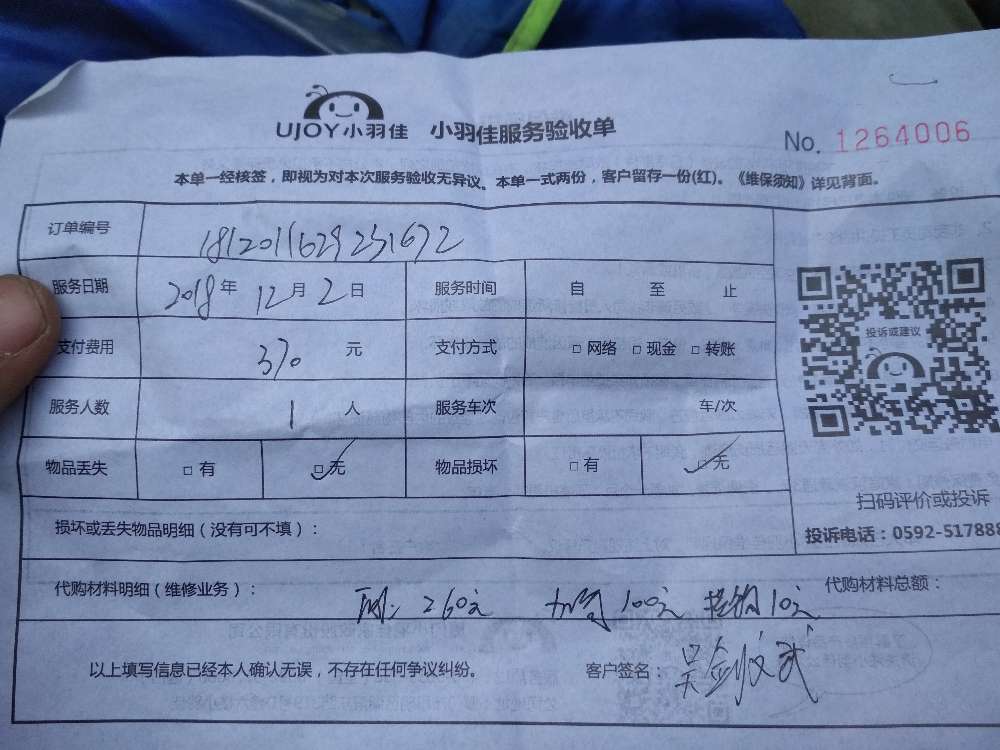 UJOY小羽佳 小羽佳服务验收单
No. 1264006
本单一经核签，即视为对本次服务验收无异议。本单一式两份，客户留存一份(红)。《维保须知》详见背面。
订单编号
服务日期 2018年 12月 2日 服务时间 自 至 止
投诉或建议
支付费用 370 元 支付方式 □ 网络 □ 现金 □ 转账
服务人数 1 人 服务车次 车/次
物品丢失 □ 有 □ 无 物品损坏 □ 有 □ 无
扫码评价或投诉
投诉电话：0592-517888
损坏或丢失物品明细（没有可不填）：
代购材料明细（维修业务）： 代购材料总额：
260元 100元 10元
以上填写信息已经本人确认无误，不存在任何争议纠纷。 客户签名：